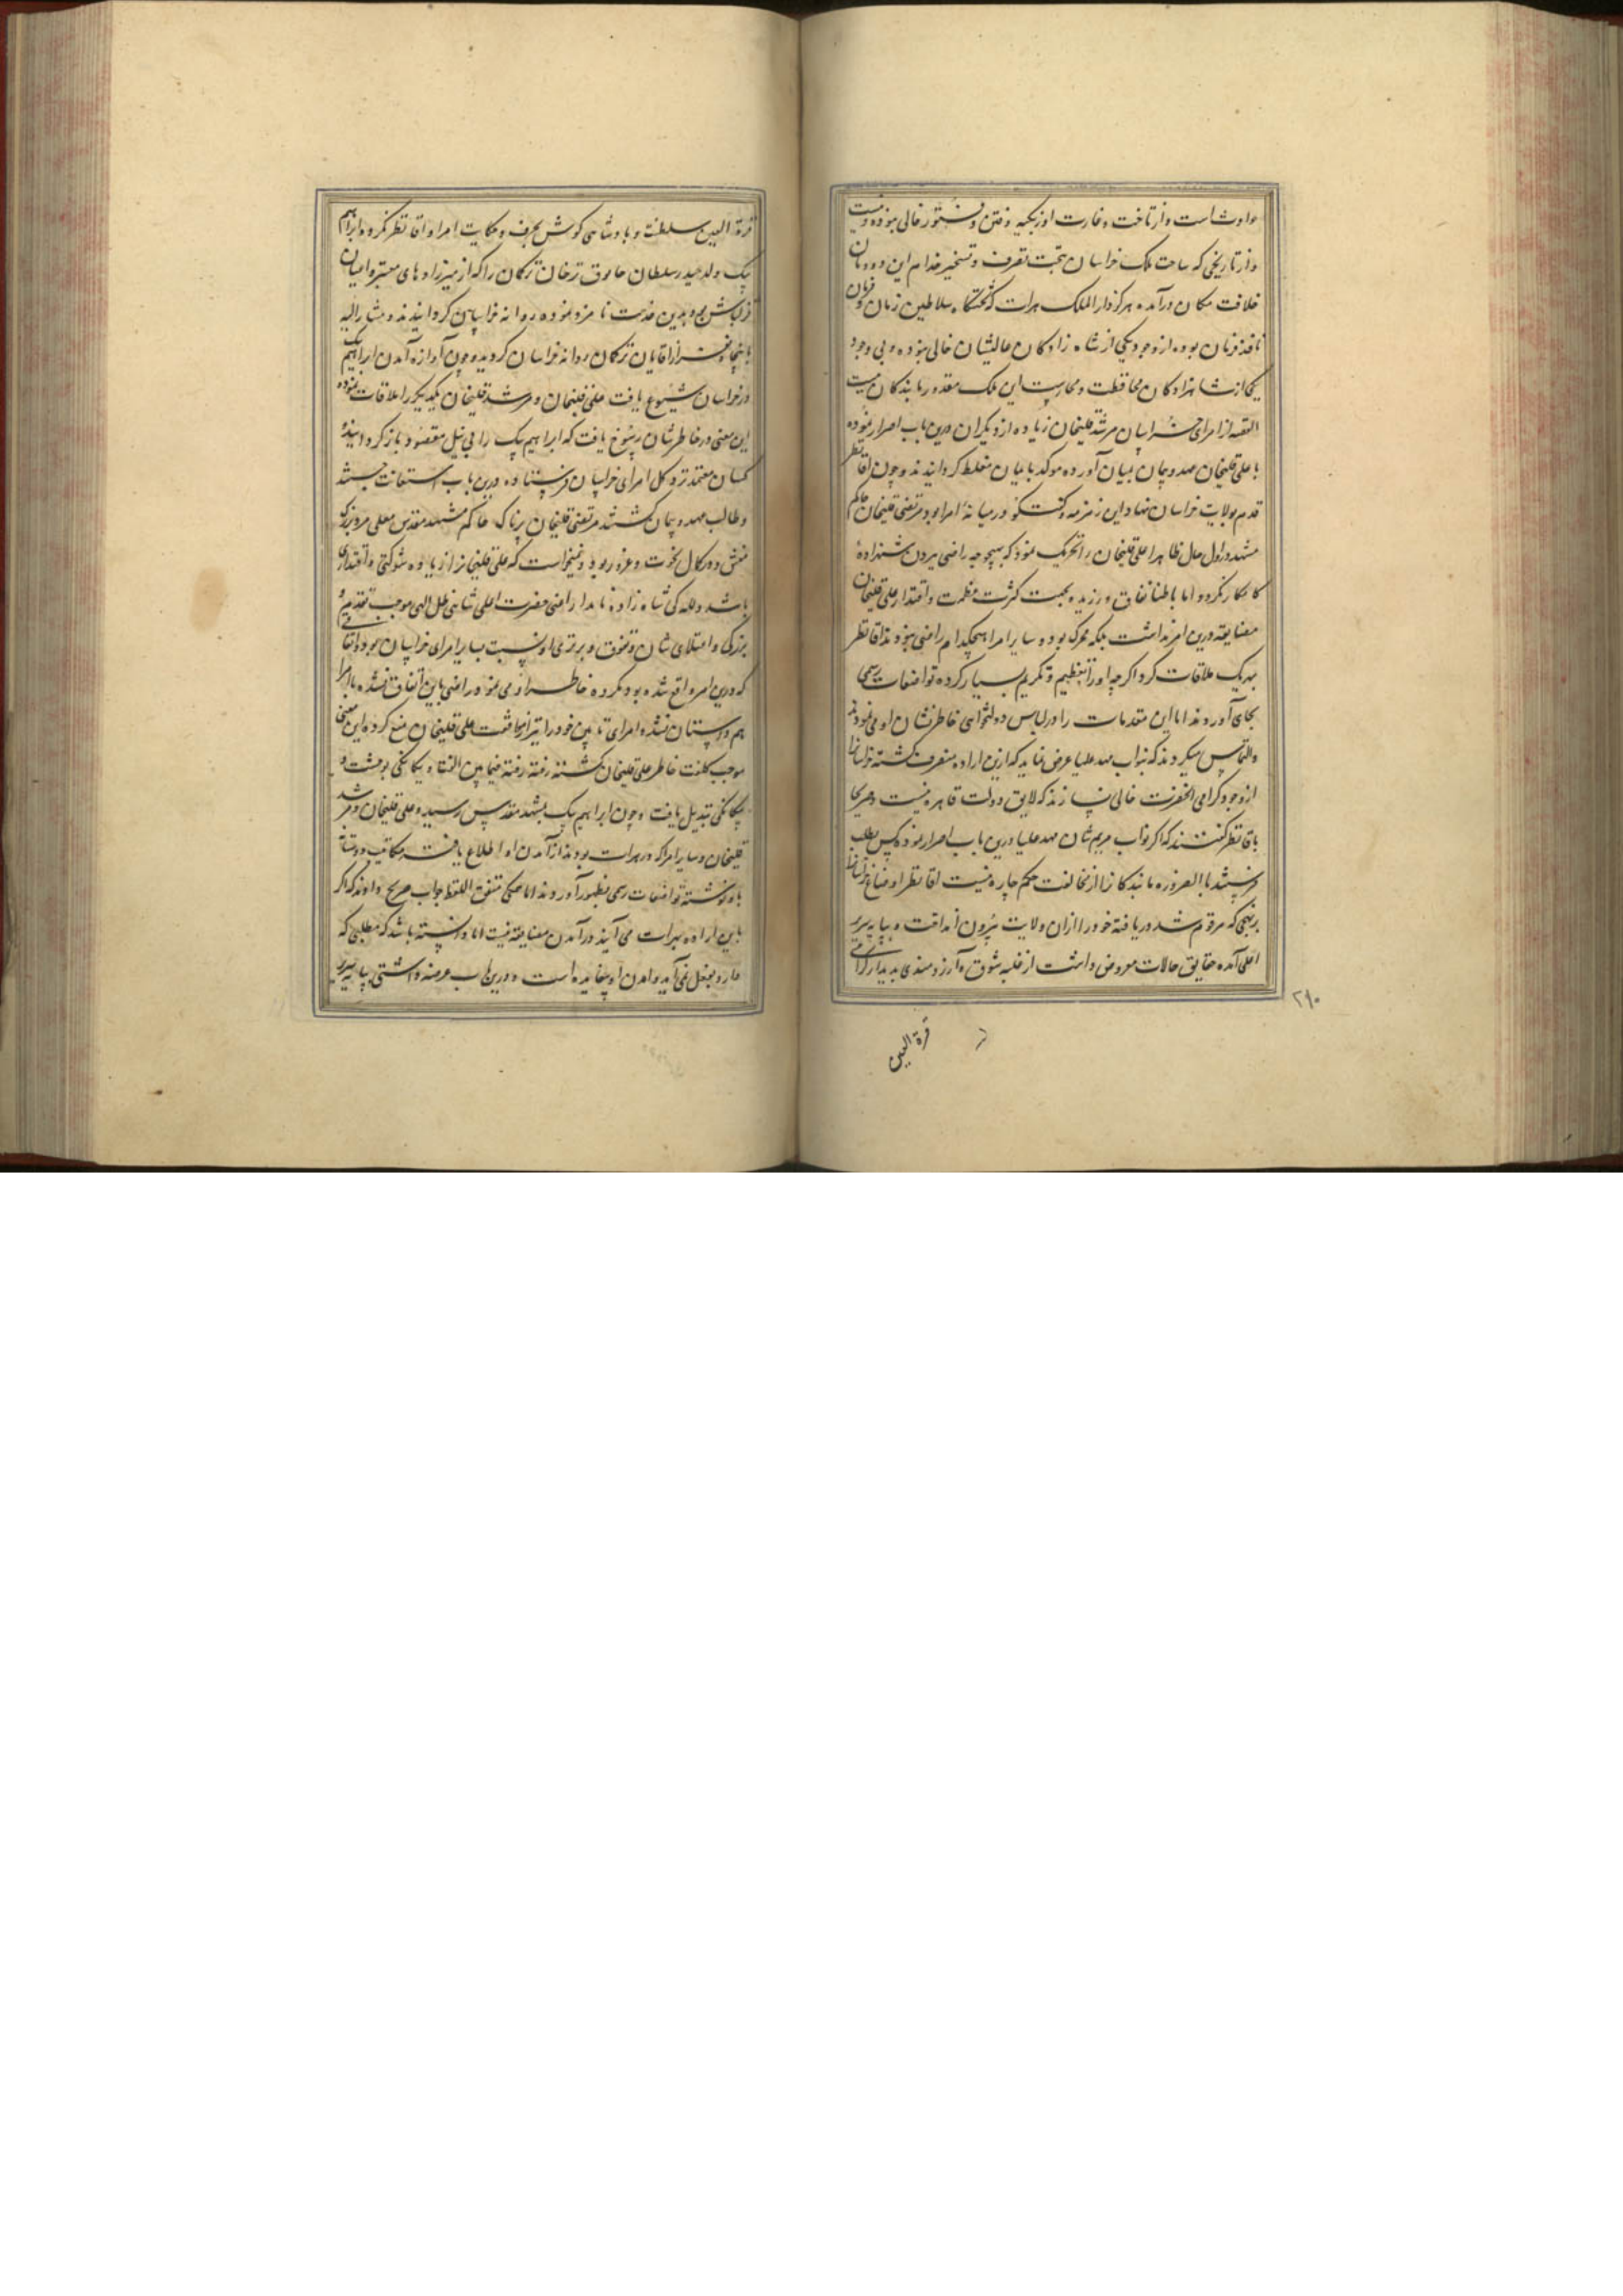 حوادث است و از تاخت و غارت اوزبکیه و فتن و فتور خالی نبوده و نیست
و از تاریخی که ساحت ملک خراسان بتحت تصرف و تسخیر خدام این دودمان
خلافت مکان درآمده هرگز دار الملک هرات که تختگاه سلاطین زمان و فرمان
نافذ فرمان بوده از وجود یکی از شاه زادگان عالیشان خالی نبوده و بی وجود
یکی از شاهزادگان محافظت و محارست این ملک مقدور ما بندگان نیست
القصه از امرای خراسان مرشد قلیخان زیاده از دیگران درین باب اصرار نموده
با علی قلیخان عهد و پیمان بمیان آورده موکد بایمان مغلظ گردانیدند و چون اقا نظر
قدم بولایت خراسان نهاد این زمزمه و گفتگو در میانهٔ امرا بود مرتضی قلیخان حاکم
مشهد در اول حال ظاهرا علی قلیخان را تحریک نمود که بهیچوجه راضی ببردن شهزادهٔ
کامکار نگردد اما باطنا نفاق ورزیده بجهت کثرت عظمت و اقتدار علی قلیخان
مضایقه درین امر نداشت بلکه محرک بود و سایر امرا هیچکدام راضی نبودند اقا نظر
بهریک ملاقات کرد اگرچه او را تعظیم و تکریم بسیار کرده تواضعات رسمی
بجای آوردند اما این مقدمات را در لباس دولتخواهی خاطرنشان او می نمودند
و التماس میکردند که بنواب مهد علیا عرض نماید که ازین اراده منصرف گشته خراسانرا
از وجود گرامی انحضرت خالی نسازند که لایق دولت قاهره نیست و صریحا
باقا نظر گفتند که اگر نواب مریم شان مهد علیا درین باب اصرار نموده کس بطلب
فرستند بالضروره ما بندگانرا از مخالفت حکم چاره نیست اقا نظر اوضاع خراسانرا
بر نهجی که مرقوم شد دریافته خود را از ان ولایت بیرون انداخت و بپایه سریر
اعلی آمده حقایق حالات معروض داشت از غلبه شوق و آرزومندی بدیدار گرامی
۲۹۰
قرة العین
قرة العین سلطنت و پادشاهی گوش بحرف و حکایت امرا و اقا نظر نکرده ابراهیم
بیک ولد حیدر سلطان جابوق ترخان ترکمان را که از میرزادهای معتبر و اعیان
قزلباش بود بدین خدمت نامزد نموده روانه خراسان گردانیدند و مشار الیه
با پنجاه نفر از اقایان ترکمان روانه خراسان گردید و چون آوازه آمدن ابراهیم بیک
در خراسان شیوع یافت علی قلیخان و مرشد قلیخان یکدیگر را ملاقات نموده
این معنی در خاطرشان رسوخ یافت که ابراهیم بیک را بی نیل مقصود باز گردانیده
کسان معتمد نزد کل امرای خراسان فرستاده درین باب استعانت جستند
و طالب عهد و پیمان گشتند مرتضی قلیخان پرناک که حاکم مشهد مقدس معلی مرد بزرگ
منش و در کمال نخوت و غرور بود و نمیخواست که علی قلیخانرا زیاده شوکتی و اقتداری
باشد و للـه گی شاه زادهٔ نامدار اعنی حضرت اعلی شاهی ظل اللهی موجب تقدم و
بزرگی و اعتلای شان و تفوق و برتری او نسبت بسایر امرای خراسان بود و اتفاقی
که درین امر واقع شده بود مکروه خاطر او می نمود راضی باین اتفاق نشده با امرا
هم داستان نشد و امرای تابین خود را نیز از موافقت علی قلیخان منع کرد و این معنی
موجب کلفت خاطر علی قلیخان گشته رفته رفته فیمابین الفت و یگانگی بوحشت و
بیگانگی تبدیل یافت و چون ابراهیم بیک بمشهد مقدس رسید و علی قلیخان و مرشد
قلیخان و سایر امرا که در هرات بودند از آمدن او اطلاع یافتند مکاتیب دوستانه
باو نوشته تواضعات رسمی بظهور آوردند اما همگی متفق اللفظ جواب صریح دادند که اگر
باین اراده بهرات می آیند در آمدن مضایقه نیست اما دانسته باشد که مطلبی که
دارد بفعل نمی آید و آمدن او بیفایده است و درین باب عرضه داشتی بپایه سریر